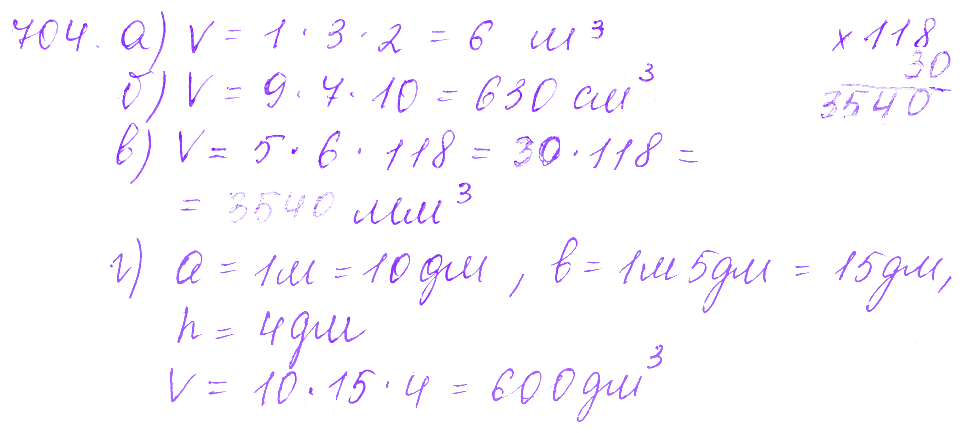 704. а) V = 1 · 3 · 2 = 6 м³
б) V = 9 · 7 · 10 = 630 см³
в) V = 5 · 6 · 118 = 30 · 118 =
= 3540 мм³
г) a = 1м = 10дм, в = 1м 5дм = 15дм,
h = 4дм
V = 10 · 15 · 4 = 600дм³
× 118
30
3540